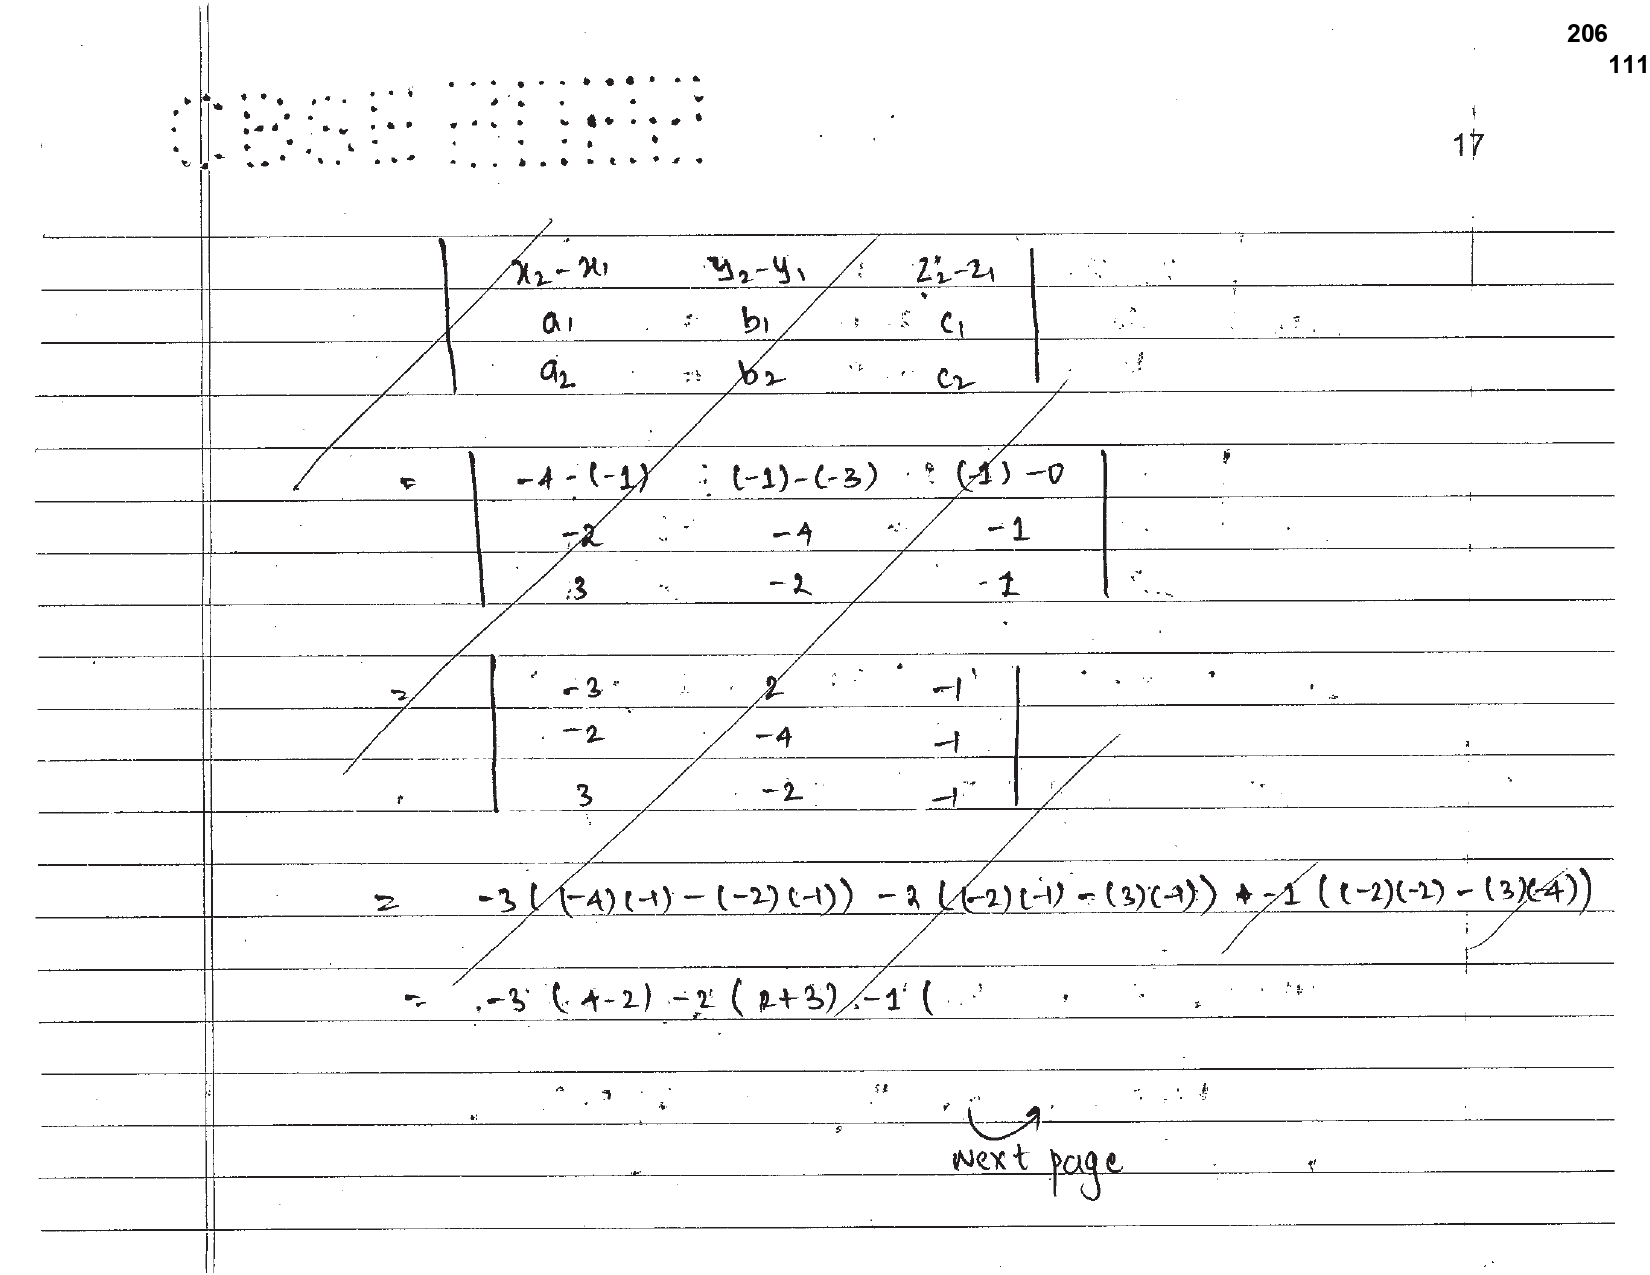 206
111
17
x₂-x₁ y₂-y₁ z₂-z₁
a₁ b₁ c₁
a₂ b₂ c₂
= -4-(-1) (-1)-(-3) (-1)-0
-2 -4 -1
3 -2 -1
= -3 2 -1
-2 -4 -1
3 -2 -1
= -3((-4)(-1)-(-2)(-1)) -2((-2)(-1)-(3)(-1)) + -1((-2)(-2)-(3)(-4))
= -3(4-2) -2(2+3) -1(
Next page